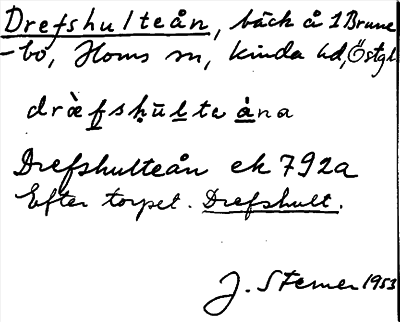 Drefshulteån, bäck å 1 Brune
-bo, Horns sn, Kinda hd, Östgl
dræ̀fshu̅lteåna
Drefshulteån ek 792a
Efter torpet. Drefshult.
J. Sterner 1953